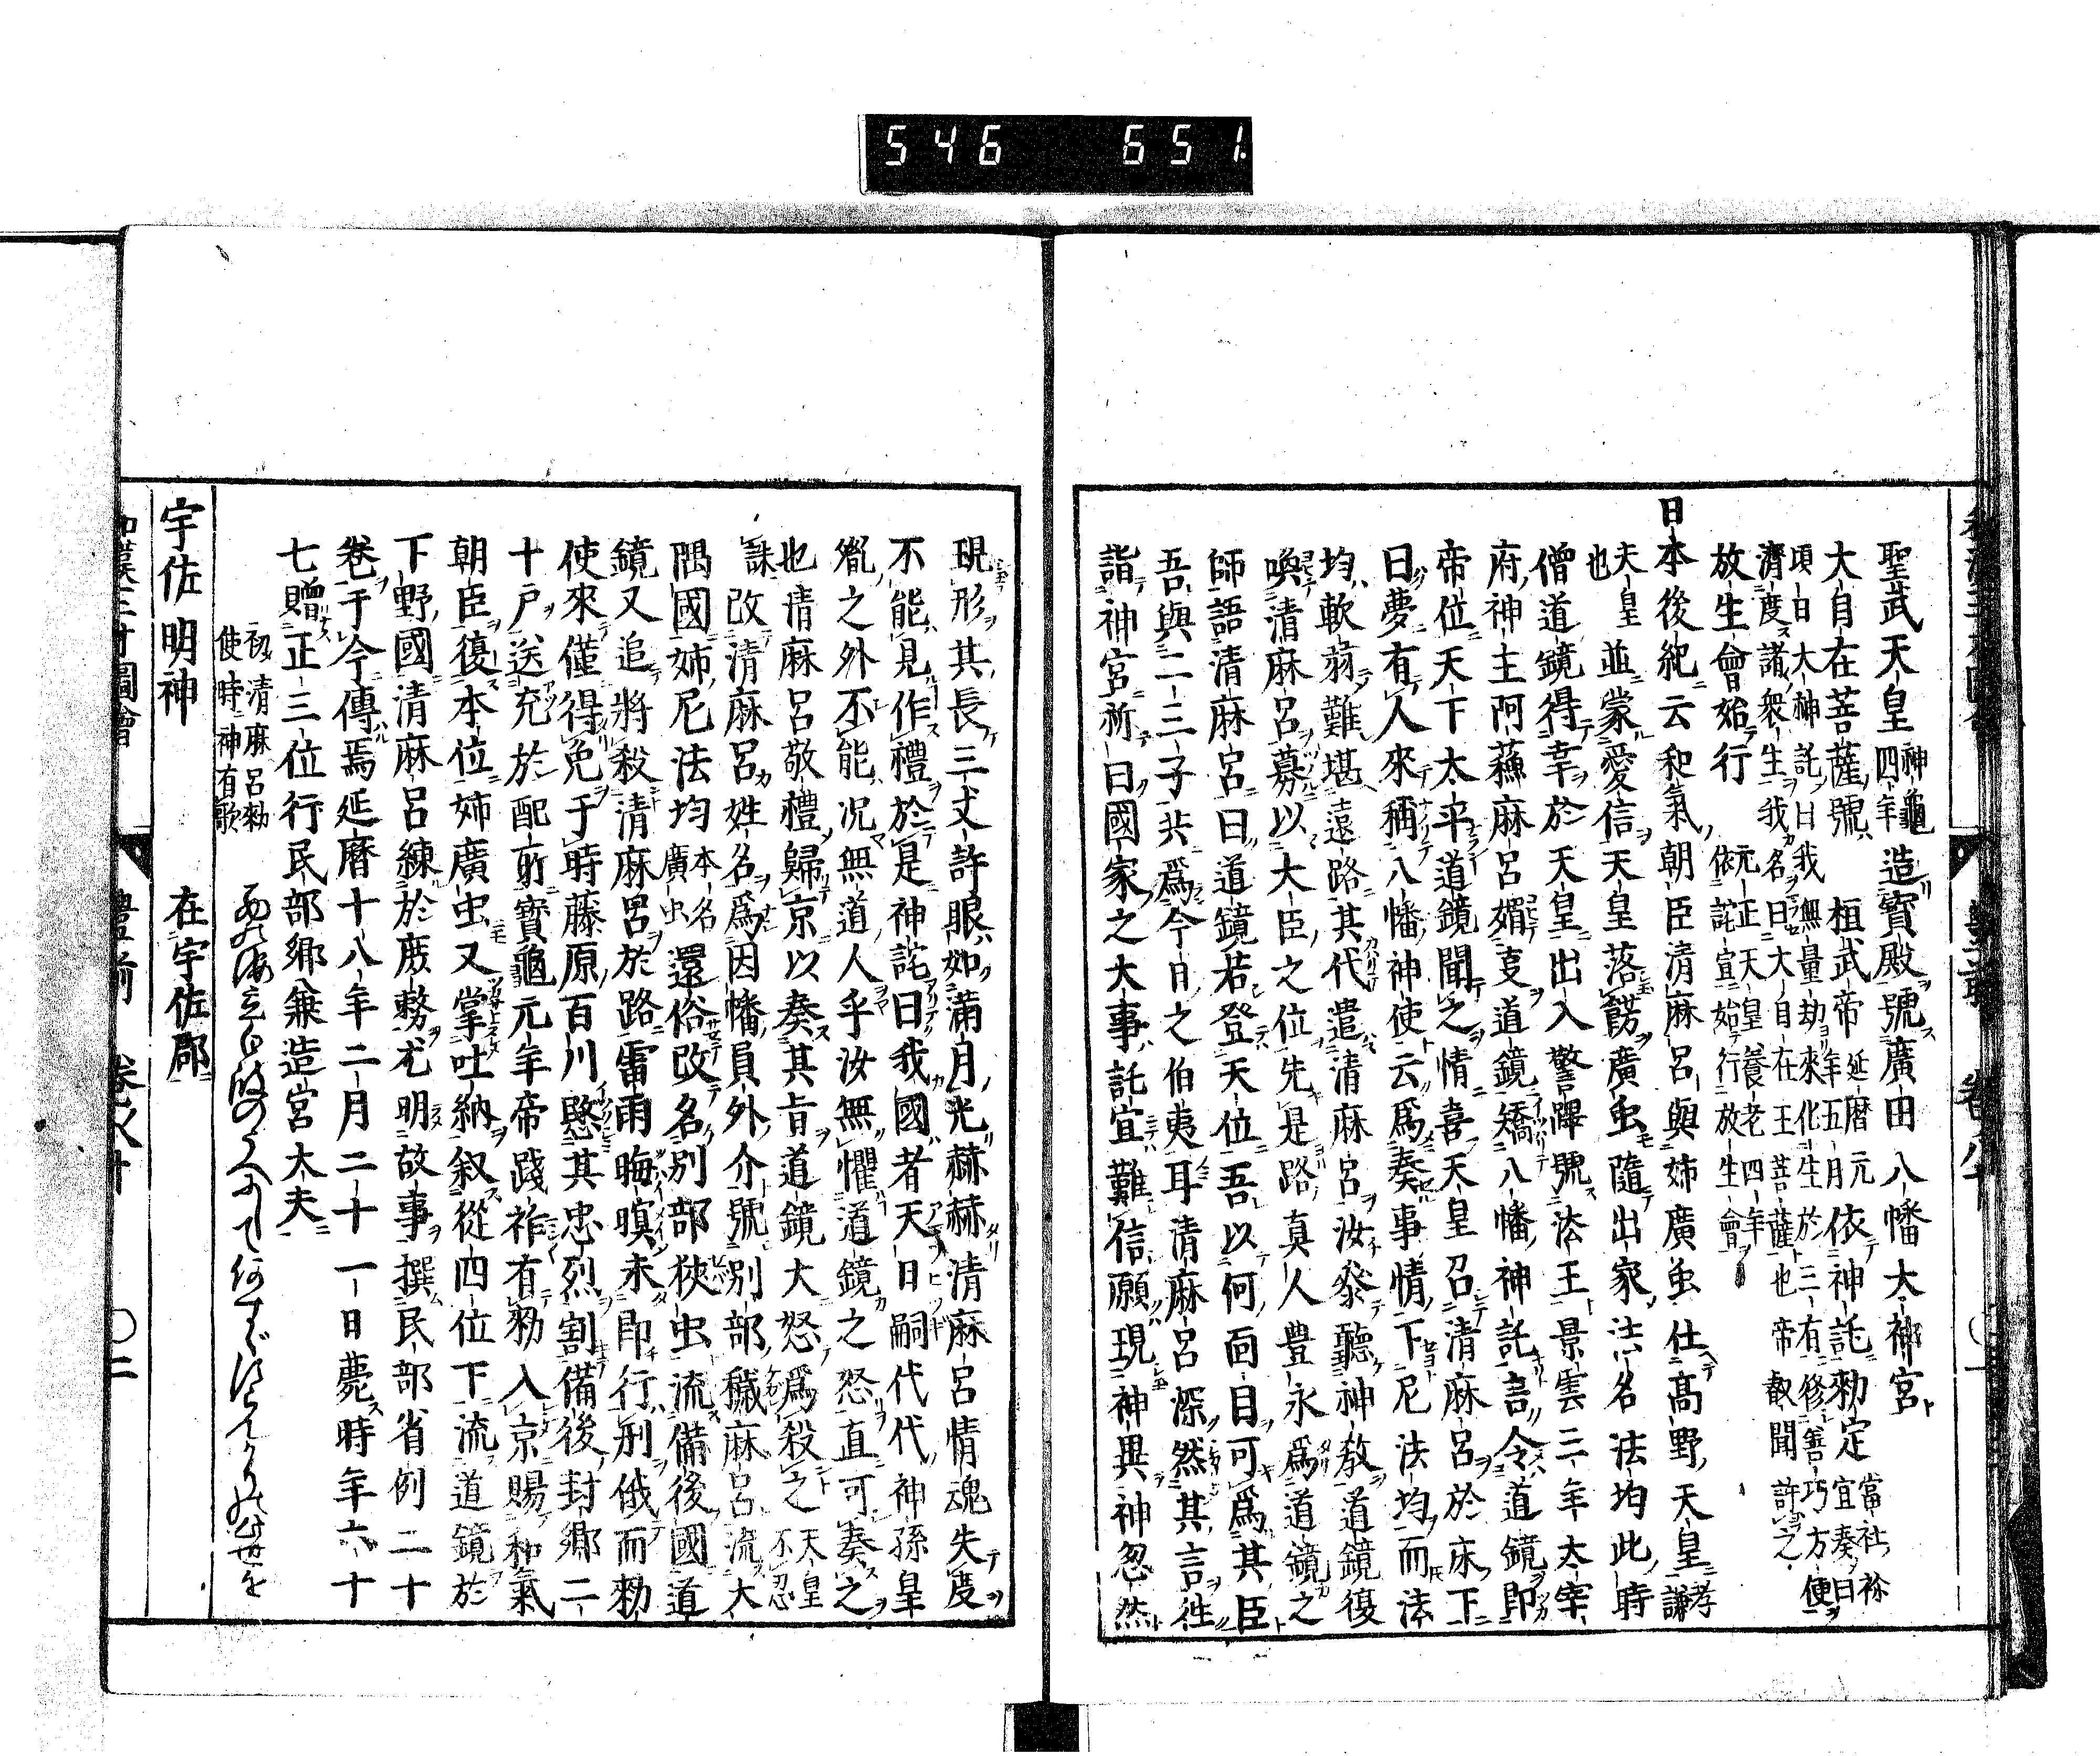 546 651
聖武天皇神龜四年造寶殿號廣田八幡大神宮
大自在菩薩號 桓武帝延暦元年五月依神託勅定當社祢宜奏曰
頃日大神託曰我無量劫來化生於三有修善巧方便
濟度諸衆生我名曰大自在王菩薩也帝叡聞許之
放生會始行元正天皇養老四年依託宣始行放生會
日本後紀云和氣朝臣清麻呂與姉廣虫仕高野天皇孝謙
天皇也並蒙愛信天皇落餝廣虫隨出家法名法均此時
僧道鏡得幸於天皇出入警蹕號法王景雲二年太宰
府神主阿蘓麻呂媚夏道鏡矯八幡神託言令道鏡即
帝位天下太平道鏡聞之情喜天皇召清麻呂於床下
曰夢有人來稱八幡神使云爲奏事情下尼法均而法
均軟弱難堪遠路其代遣清麻呂汝參聽神教道鏡復
喚清麻呂募以大臣之位先是路真人豊永爲道鏡之
師語清麻呂曰道鏡若登天位吾以何面目可爲其臣
吾與二三子共爲今日之伯夷耳清麻呂深然其言徃
詣神宮祈曰國家之大事託宣難信願現神異神忽然
現形其長三丈許眼如滿月光赫赫清麻呂情魂失度
不能見作禮於是神託曰我國者天日嗣代代神孫皇
之外不能况無道人乎汝無懼道鏡之怒直可奏之
也清麻呂敬禮歸京以奏其旨道鏡大怒爲殺之天皇不忍
誅改清麻呂姓名爲因幡員外介號別部穢麻呂流大
隅國姉尼法均本名廣虫還俗改名別部狹虫流備後國道
鏡又追將殺清麻呂於路雷雨晦暝未即行刑俄而勅
使來僅得免于時藤原百川愍其忠烈割備後封郷二
十戸送充於配所寶龜元年帝踐祚有勅入京賜和氣
朝臣復本位姉廣虫又掌吐納叙從四位下流道鏡於
下野國清麻呂練於庶務尤明故事撰民部省例二十
卷于今傳焉延暦十八年二月二十一日薨時年六十
七贈正三位行民部卿兼造宮太夫
初清麻呂勅使時神有歌
宇佐明神 在宇佐郡
和漢三才圖會 豊前 卷之八十 〇二